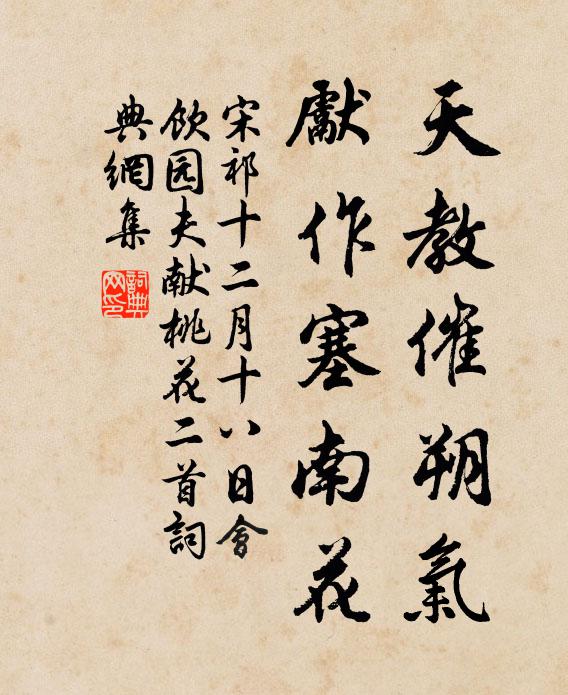 天教催朔氣
獻作塞南花
宋祁十二月十八日會
飲园夫献桃花二首詞
典網集
詞典
网印